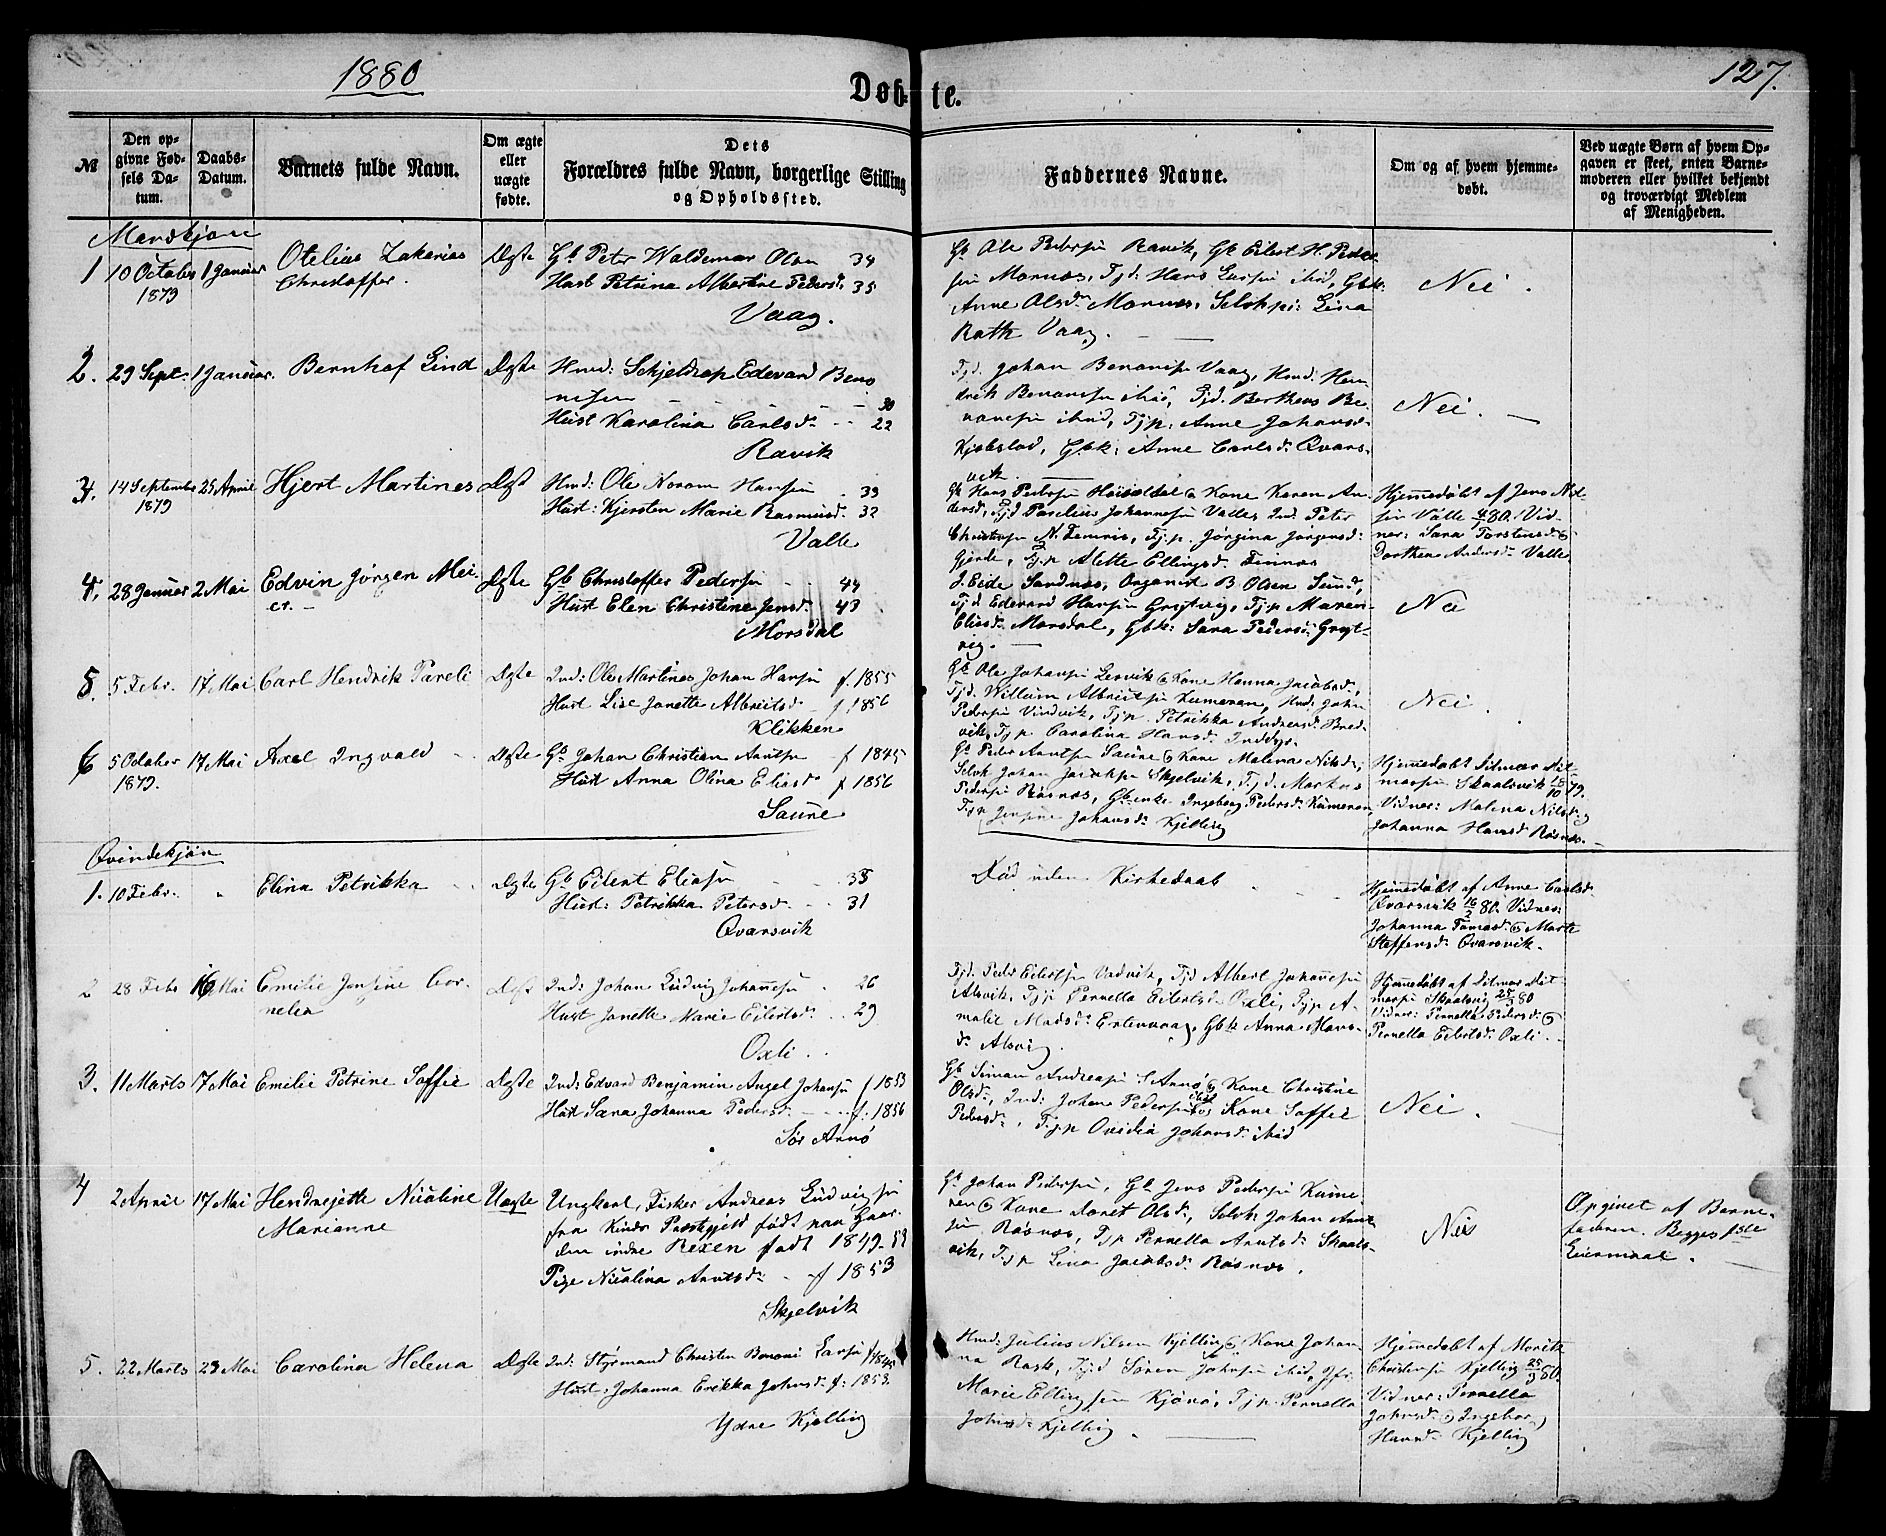 1880
Døbte.
127.
№
Den opgivne Fødsels Datum.
Daabs-Datum.
Barnets fulde Navn.
Om ægte eller uægte fødte.
Dets
Forældres fulde Navn, borgerlige Stilling
og Opholdssted.
Faddernes Navne.
Om og af hvem hjemmedøbt.
Ved uægte Børn af hvem Opgaven er skeet, enten Barnemoderen eller hvilket bekjendt og troværdigt Medlem af Menigheden.
Mandkjøn
1 10 October 1 Januar Otelius Zakarias Ægte Gb Peter Waldemar Olsen 34
1879 Christoffer. Hust Petrina Albertine Pedersd. 35
Vaag.
Gb Ole Pedersen Ravik, Gb Eilert H. Peder-
sen Mornæs, Tjd: Hans Larsen ibid, Gbk:
Anne Olsdr Mornæs, Selvhpi: Lina
Rath Vaag.
Nei.
2. 29 Sept. 1 Januar. Bernhof Lind Ægte Hmd: Schjeldrop Edevard Beno
nisen 30
Hust Karolina Carlsd. 22
Ravik
Tjd. Johan Benonisen Vaag, Hmd. Hen-
drik Benonisen ibid, Tjd. Bertheus Be-
nonisen ibid, Tjp. Anne Johansd.
Kjøbstad, Gbk: Anne Carlsd. Qvars-
vik.
Nei.
3. 14 September 25 April Hjert Martines Ægt Hmd: Ole Norom Hansen 39
1879 Hust: Kjersten Marie Rasmusd. 32
Valle
Gb Hans Pedersen & Kone Karen An-
dersd, Tjd Paselius Johannesen Valle, Ind. Peter
Christophersen N. Tjp. Jørgina Jørgensd:
Gjerde, Tjp Alette Ellingsd. Finnes
Hjemmedøbt af Jens Niel-
sen Valle 4/1 80. Vid-
ner: Sara Torstensd &
Dorthea Andersd. Valle
4. 28 Januar 2 Mai Edvin Jørgen Mei- Ægte Gb Christoffer Pedersen 44
er. Hust Elen Christine Jensd. 43
Morsdal
J. Eide Sandnes, Organist B Olsen Sund,
Tjd Edevard Hansen Grytvig, Tjp Maren
Eliasd. Morsdal, Gbk: Sara Pedersd. Gryt-
vig.
Nei
5. 5 Febr. 17 Mai Carl Hendrik Pareli Ægte Ind: Ole Martines Johan Hansen f. 1855
Hust Lise Janette Albreitsd. f. 1856
Klikken
Gb Ole Johansen Lervik & Kone Hanna Jacobsd,
Tjd. Willum Albriktsen Kumeran, Hmd: John
Pedersen Vindvik, Tjp Petrikka Andreasd. Bred-
vik, Tjp Carolina Hansd. Inddyr.
Nei.
6 5 October 17 Mai Axel Ingvald Ægte Gb Johan Christian Arntsen f 1845
1879. Hust Anna Olina Eliasd f 1856
Saure
Gb Peder Arntsen Saure & Kone Malena Nilsd,
Selvh Johan Jacobsen Skjelvik, Tjd. Markus
Pedersen Røsnæs, Gbenke Ingeborg Pedersd. Kumeran,
Tjp Jensine Johansd. Kjelling
Hjemmedøbt Ditmar Dit-
marsen Skaalsvik 18/10 79.
Vidner: Malena Nilsd &
Johanna Hansd Røsnæs.
Qvindekjøn
1. 10 Febr. " Elina Petrikka Ægte Gb Eilert Eliasen 35
Hust: Petrikka Petersd. 31
Qvarsvik
Død uden Kirkedaab
Hjemmedøbt af Anne Carlsd.
Qvarsvik 16/2 80. Vidner:
Johanna Tomasd. & Marte
Steffensd. Qvarsvik.
2 28 Febr 16 Mai Emilie Jensine Cor- Ægt Ind: Johan Ludvig Johannesen 26
nelia Hust Janette Marie Eilertsd. 29
Oxli.
Tjd. Peder Eilertsen Vndvik, Tjd Albert Johannesen
Alsvik, Tjp Pernella Eilertsd. Oxli, Tjp A-
malie Madsd. Ertenvaag, Gbk Anna Hans-
d. Alsvig.
Hjemmedøbt af Ditmar Dit-
marsen Skaalsvig 25/3 80
Vidner: Pernella Pedersd. &
Pernella Eilertsd. Oxli.
3. 11 Marts 17 Mai Emilie Petrine Soffie Ægte Ind: Edvard Benjamin Angel Johansen f 1853
Hust Sara Johanna Pedersd. f. 1856
Sør Arnø
Gb Simon Andreasen S Arnø & Kone Christine
Olsd., Ind: Johan Pedersen ibid & Kone Soffie
Pedersd., Tjp Ovidia Johansd. ibid
Nei.
4 2 April 17 Mai Hendrejette Nicoline Uægte Ungkarl, Fisker Andreas Ludvigsen
Marianne fra Kinds Præstgjeld født paa Gaar-
den indre Rexen født 1849
Pige Nicolina Arntsd. f 1853
Skjelvik
Gb Johan Pedersen, Gb Jens Pedersen Kume-
ren & Kone Doret Olsd., Selvh: Johan Arnt-
sen Røsnæs, Tjp Pernella Arntsd. Skaals-
vik, Tjp Lina Jacobsd. Røsnæs.
Nei
Opgivet af Barne-
faderen. Begges 1ste
Leiermaal.
5. 22 Marts 23 Mai Carolina Helena Ægte Ind: Styrmand Christen Benoni Larsen f 1845
Hust. Johanna Erikka Johnsd. f. 1853.
Ydre Kjelling
Hmd: Julius Nilsen Kjelling & Kone Johan-
na Rask, Tjd Søren Johnsen ibid, Jfr.
Marie Ellingsen Kjønø, Tjp. Pernella
Johnsd. Kjelling.
Hjemmedøbt af Morits
Christensen Kjelling 25/3 80.
Vidner: Pernella
Johnsd. & Ingeborg
Hansd. Kjelling